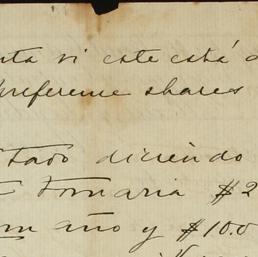 nta vi este está
Preference shares
tado diciendo
tomaria $2
un año y $10.0